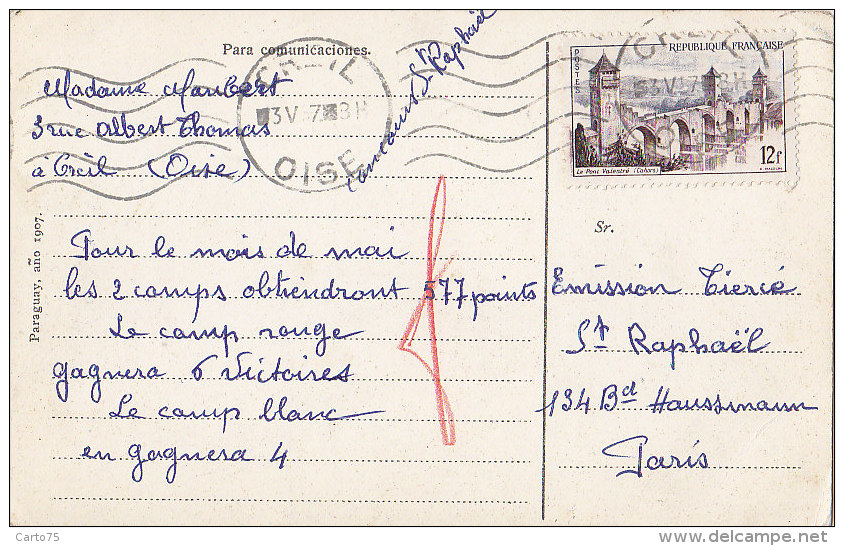 Para comunicaciones.
Concours St Raphaël
Madame Maubert
3 rue Albert Thomas
à Creil (Oise)
CREIL
3 V 57 8H
OISE
POSTES
REPUBLIQUE FRANÇAISE
12f
Le Pont Valentré (Cahors)
Paraguay, año 1907.
Pour le mois de mai
les 2 camps obtiendront 577 points
Le camp rouge
gagnera 6 Victoires
Le camp blanc
en gagnera 4
Sr.
Emission Tiercé
St Raphaël
134 Bd Haussmann
Paris
Carto75
www.delcampe.net